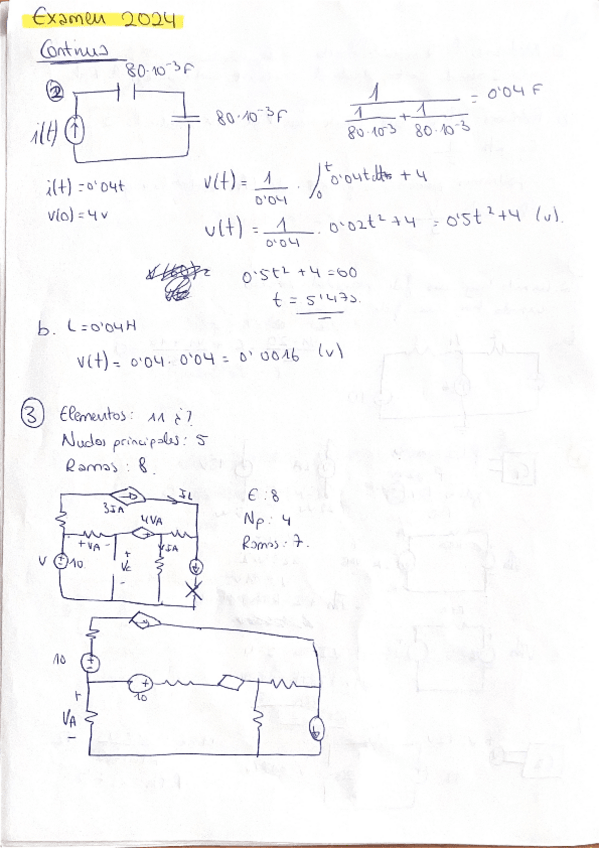 Examen 2024
Continua
② 80·10⁻³F
80·10⁻³F
i(t)
1 / (1/80·10⁻³ + 1/80·10⁻³) = 0'04 F
i(t) = 0'04t
v(0) = 4v
v(t) = 1/0'04 · ∫₀ᵗ 0'04t dt + 4
v(t) = 1/0'04 · 0'02t² + 4 = 0'5t² + 4 (v).
0'5t² + 4 = 60
t = 5'47s.
b. L = 0'04H
v(t) = 0'04 · 0'04 = 0'0016 (v)
③ Elementos: 11 ¿?
Nudos principales: 5
Ramas: 8.
3IA IL
E: 8
4VA
Np: 4
+ VA - IA
Ramas: 7.
V 10 + Vc -
10
10
+ VA -